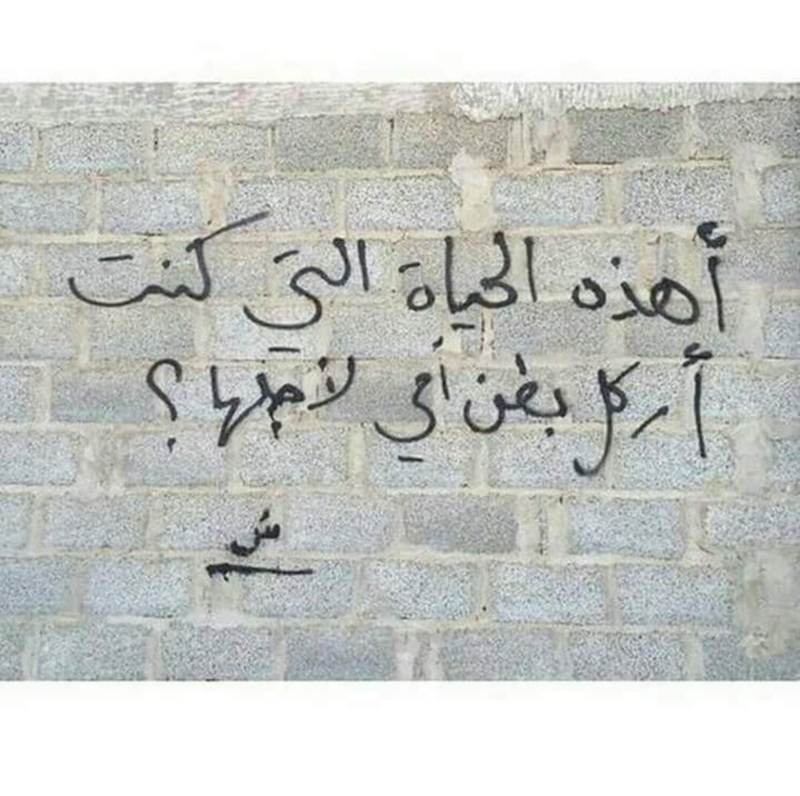 أهذه الحياة التي كنت
أركل بطن أمي لأجلها؟
ش